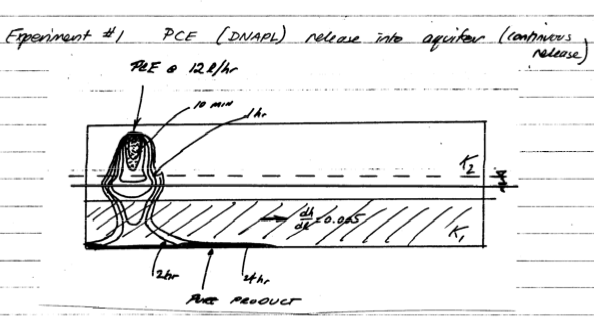 Experiment #1 PCE (DNAPL) release into aquifer (continuous release)
PCE @ 12 l/hr
10 min
1 hr
K2
dh/dl = 0.005
K1
2hr
24hr
PURE PRODUCT